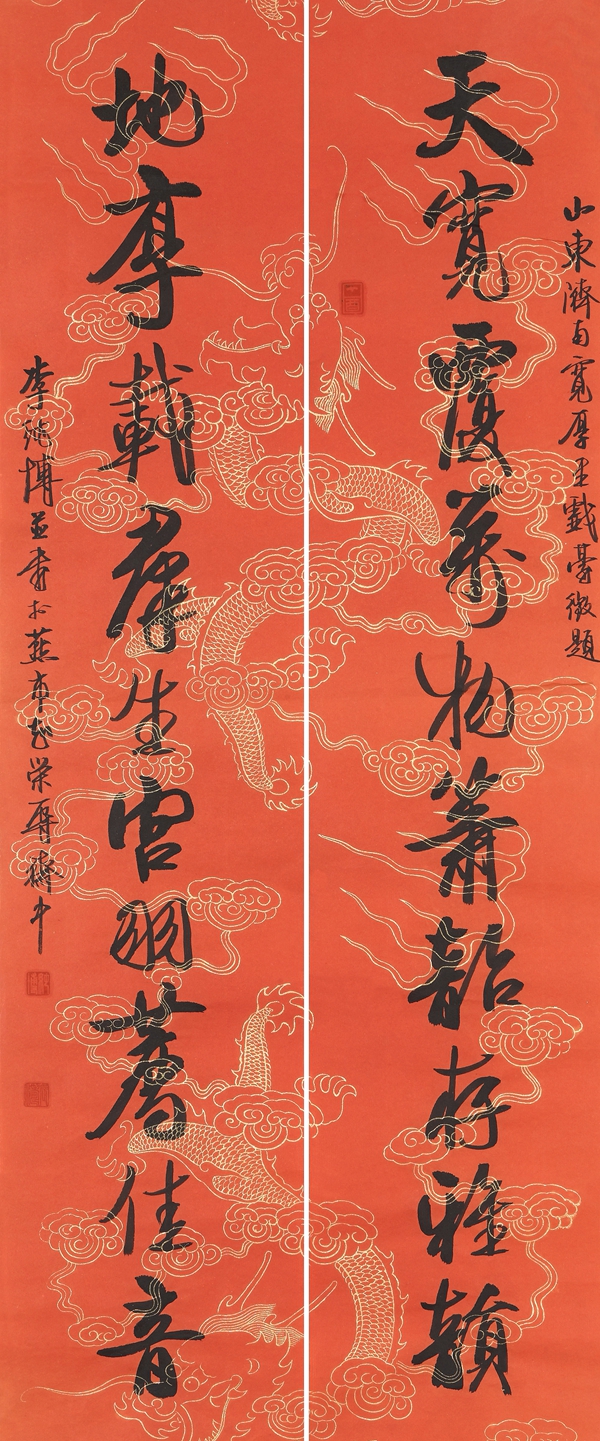 山東濟南寬厚里戲臺徵題
天寬覆萬物簫韶存雅韻
地厚載羣生宮羽薦佳音
李純博並書於燕市 榮 齋中